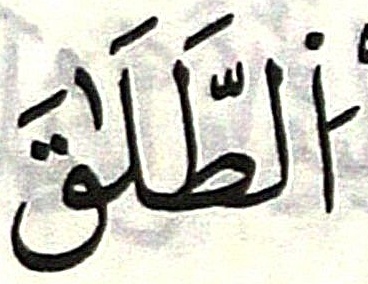 الطَّلَٰقَ